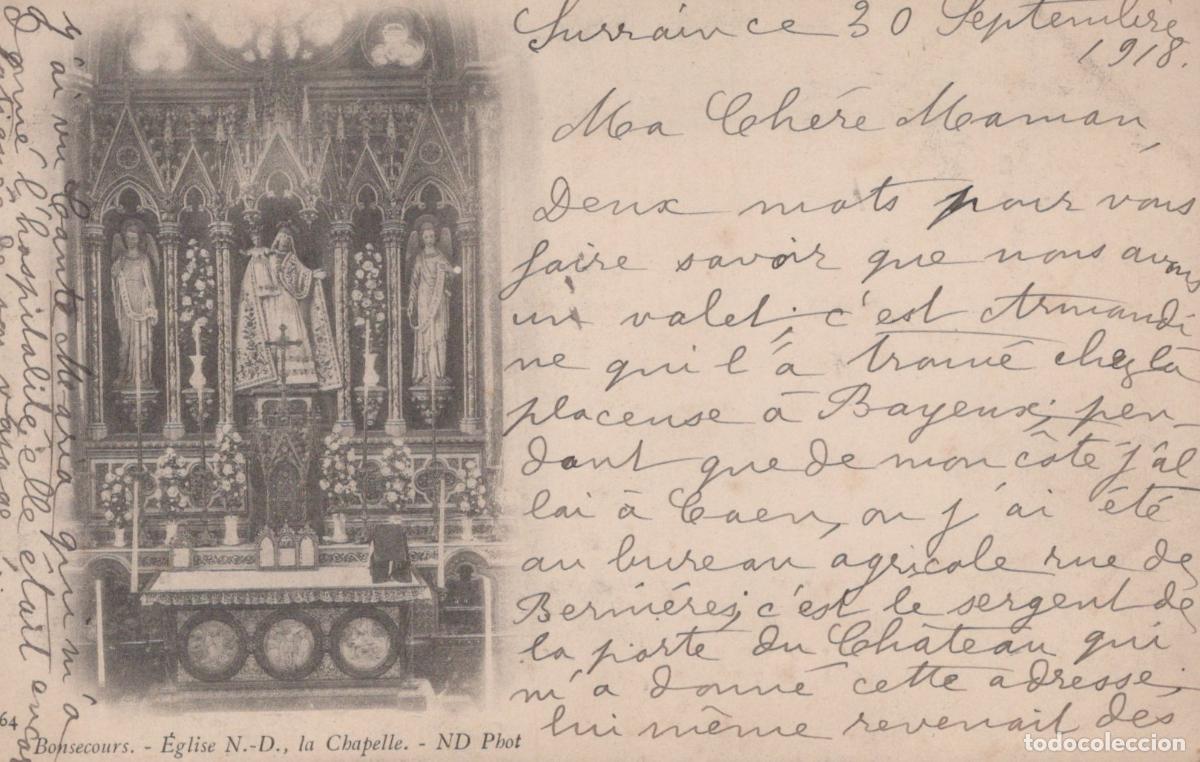 Surrain ce 30 Septembre
1918.
Ma Chére Maman,
Deux mots pour vous
faire savoir que nous avons
un valet; c'est Armandi
ne qui l'à trouvé chez la
placeuse à Bayeux; pen-
dant que de mon côte j'al
lai à Caen, ou j'ai été
au bureau agricole rue de
Berniéres; c'est le sergent de
la porte du Château qui
m'a donné cette adresse;
lui même revenait des
j'ai vu tante Maria qui m'a
donné l'hospitalité; elle était
de son
64
Bonsecours. - Église N.-D., la Chapelle. - ND Phot
todocoleccion.net